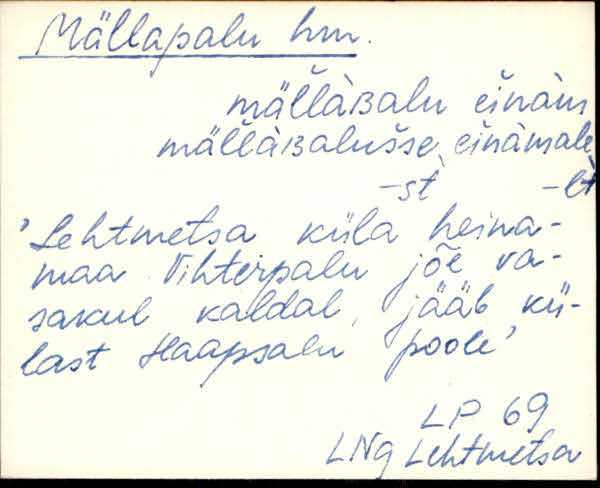 Mällapalu hm.
mäl̆l̆àʙalu eĭnàm
mäl̆l̆àʙalusse, eĭnàmale
-st̀ -lt̀
'Lehtmetsa küla heina-
maa Vihterpalu jõe va-
sakul kaldal, jääb kü-
last Haapsalu poole'
LP 69
LNg Lehtmetsa